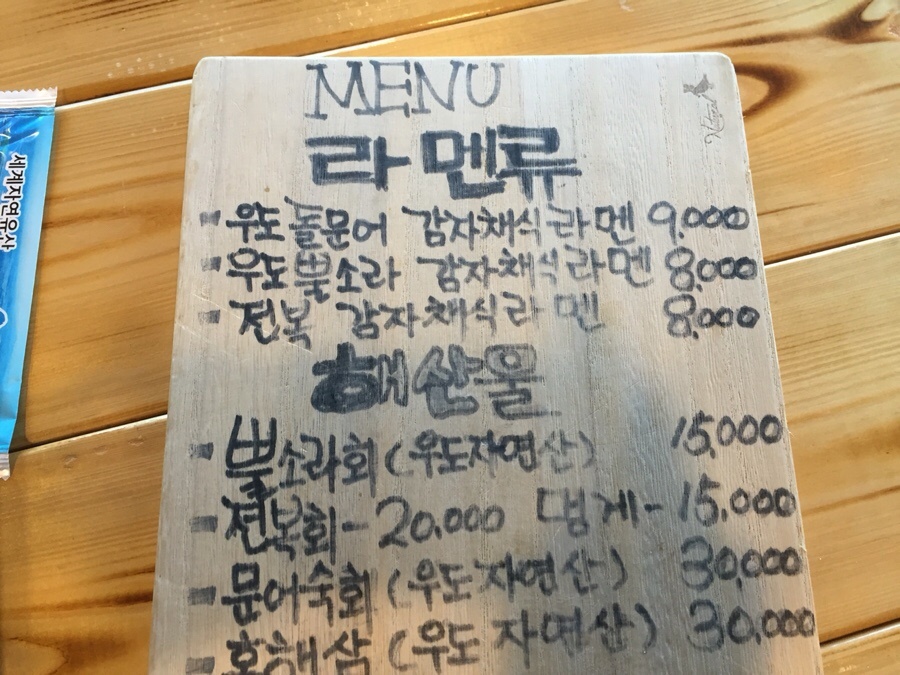 MENU
라멘류
우도 돌문어 감자채식라멘 9,000
우도뿔소라 감자채식라멘 8,000
전복 감자채식라멘 8,000
해산물
뿔소라회 (우도자연산) 15,000
전복회- 20,000 멍게- 15,000
문어숙회 (우도자연산) 30,000
홍해삼 (우도자연산) 30,000
세계자연유산